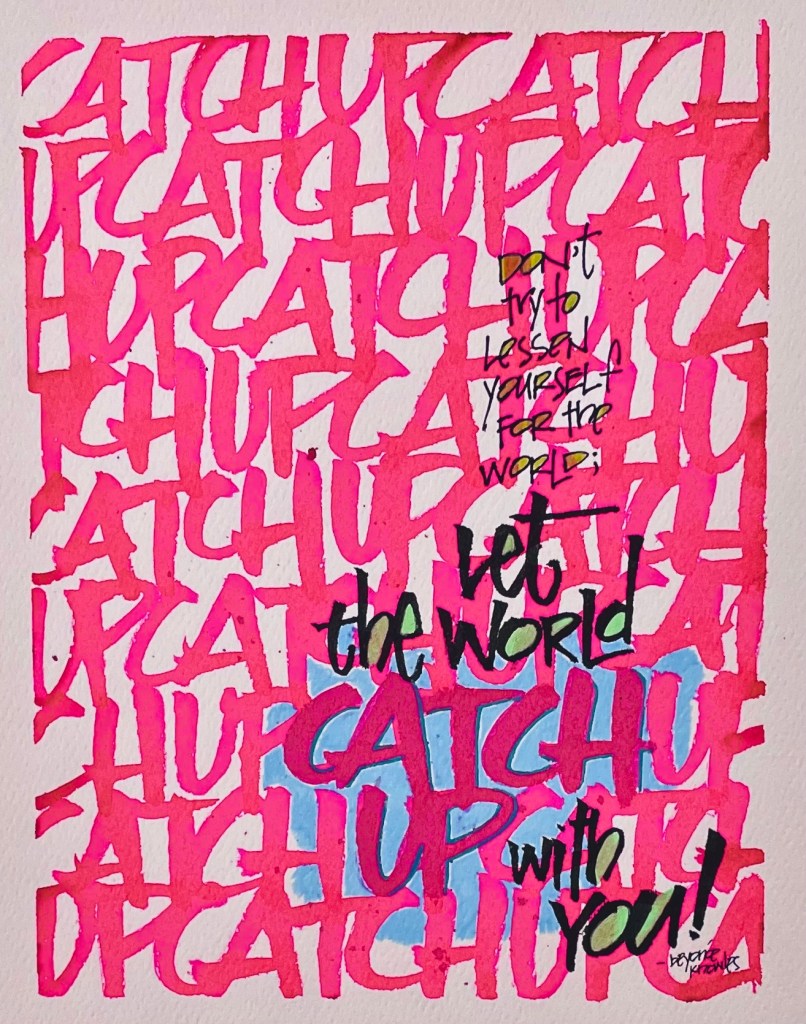 CATCHUPCATCH
UPCATCHUPCATC
HUPCATCHUPCA
TCHUPCATCHU
CATCHUPCATCH
UPCATCHUPCA
HUPCATCHUP
CATCHUPCATCH
UPCATCHUPCA
DON't
try to
Lessen
YOURSELF
FOR the
WORLD;
Let
the WORLD
CATCH
UP
with
YOU!
-beyoncé
knowles